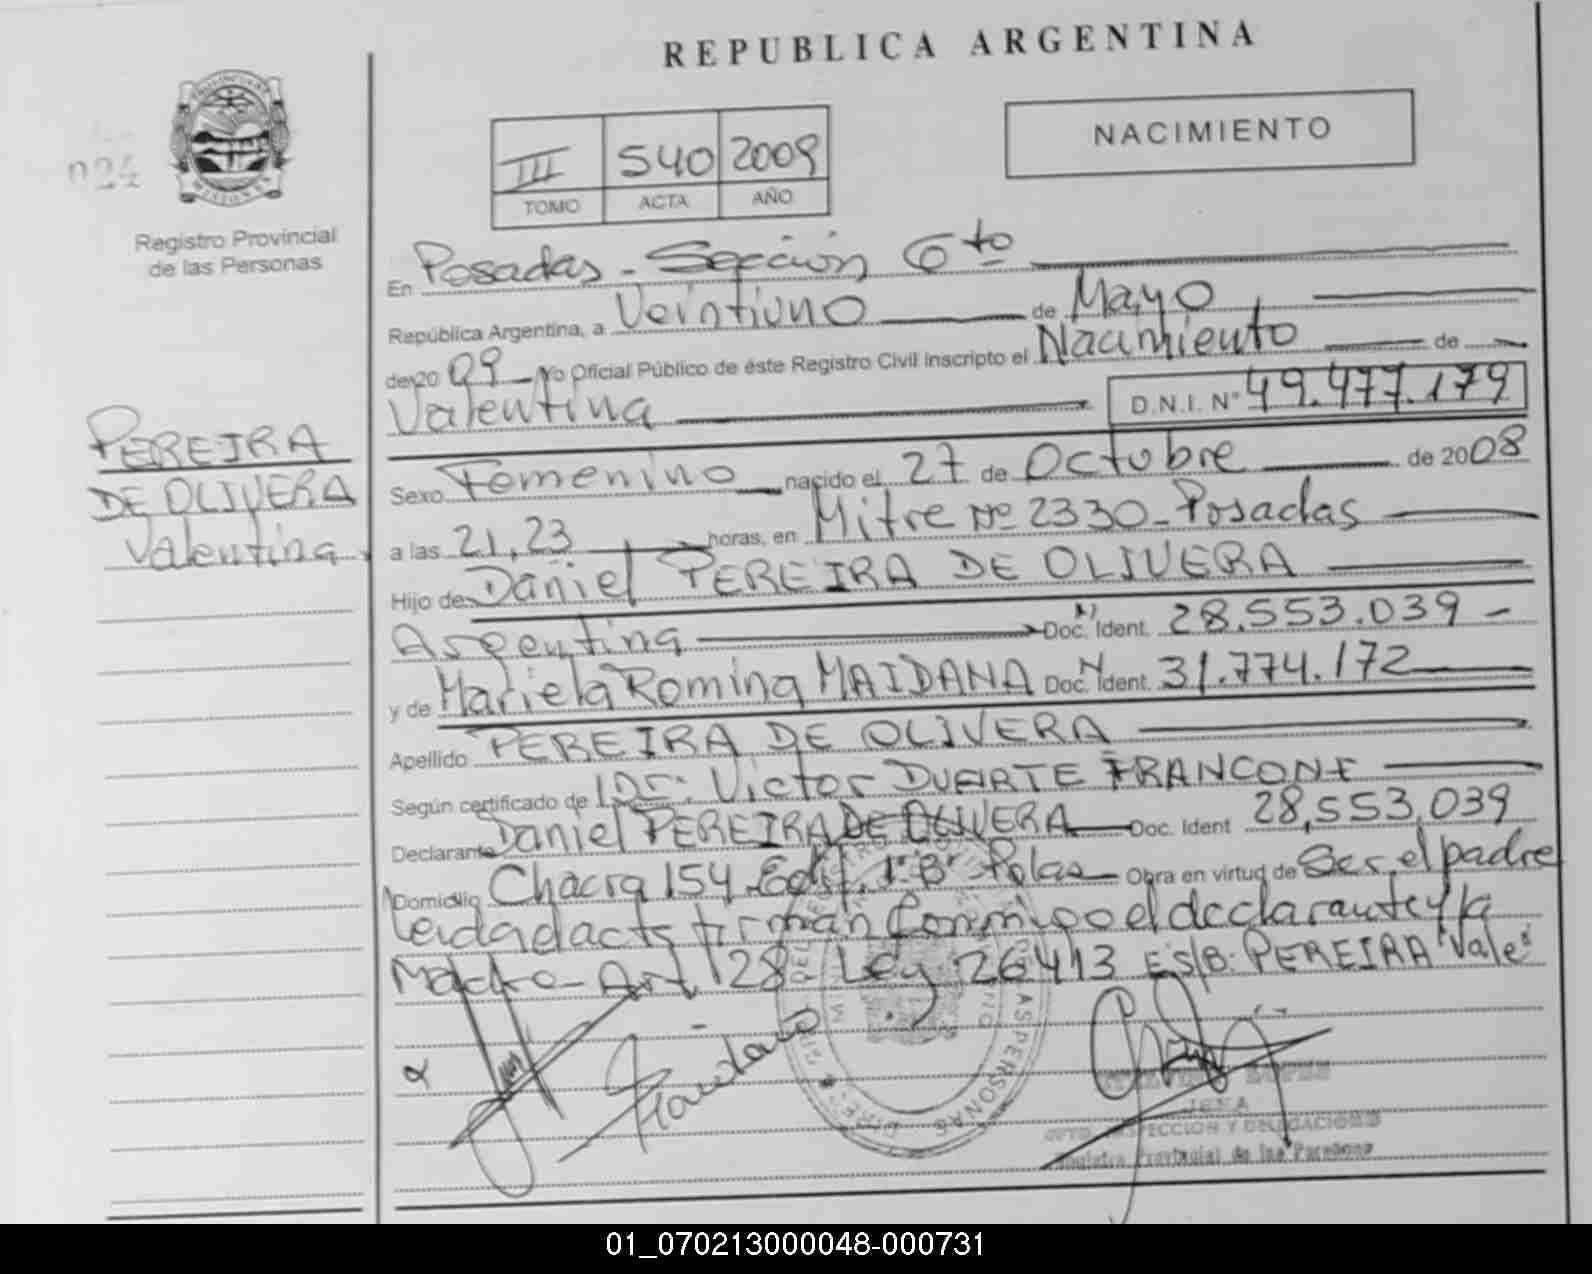 REPUBLICA ARGENTINA
024
PROVINCIA DE MISIONES
Registro Provincial
de las Personas
III 540 2009
TOMO ACTA AÑO
NACIMIENTO
En Posadas - Sección 6to
República Argentina, a Veintiuno de Mayo
de 20 09 Yo Oficial Público de éste Registro Civil Inscripto el Nacimiento de
Valentina D.N.I. Nº 49.477.179
PEREIRA
DE OLIVERA
Valentina
Sexo Femenino nacido el 27 de Octubre de 2008
a las 21,23 horas, en Mitre Nº 2330 - Posadas
Hijo de Daniel PEREIRA DE OLIVERA
Argentina Doc. Ident. 28.553.039 -
y de Mariela Romina MAIDANA Doc. Ident. 31.774.172
Apellido PEREIRA DE OLIVERA
Según certificado de Dr. Victor DUARTE FRANCONE
Declarante Daniel PEREIRA DE OLIVERA Doc. Ident 28,553,039
Domicilio Chacra 154 Edif. 1 "B" Pdas Obra en virtud de Ser el padre
Leida el acta firman Conmigo el declarante y la
Madre - Art 28 Ley 26413 ES/B: PEREIRA "Vale"
Maidana
JEFA
DPTO. INSPECCION Y DELEGACIONES
Registro Provincial de las Personas
01_070213000048-000731